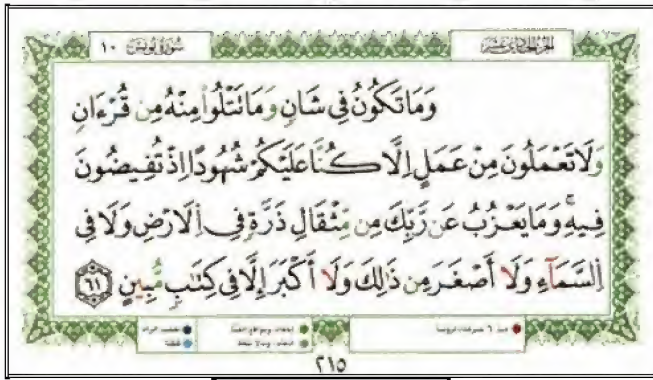 سُورَةُ يُونُسَ ١٠ الجُزْءُ الحَادِي عَشَرَ
وَمَا تَكُونُ فِي شَانٍ وَمَا تَتْلُواْ مِنْهُ مِن قُرْءَانٍ
وَلَا تَعْمَلُونَ مِنْ عَمَلٍ اِلَّا كُنَّا عَلَيْكُمْ شُهُودًا اِذْ تُفِيضُونَ
فِيهِۚ وَمَا يَعْزُبُ عَن رَّبِّكَ مِن مِّثْقَالِ ذَرَّةٍ فِي اِلَارْضِ وَلَا فِي
اِلسَّمَآءِ وَلَا أَصْغَرَ مِن ذَٰلِكَ وَلَا أَكْبَرَ إِلَّا فِي كِتَٰبٍ مُّبِينٍ ٦١
٢١٥